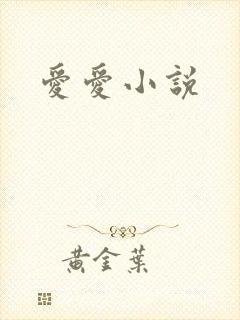 愛愛小說
黃金葉